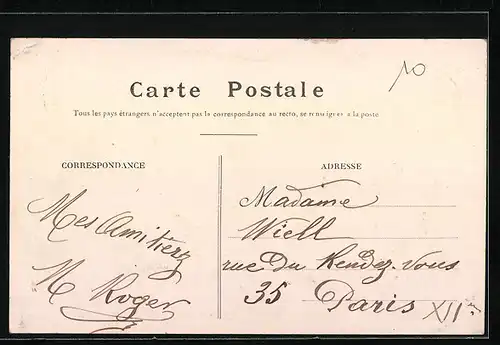 10
Carte Postale
Tous les pays étrangers n'acceptent pas la correspondance au recto, se renseigner à la poste
CORRESPONDANCE
ADRESSE
Mes Amitierz
M Roger
Madame
Wiell
rue du Rendez-Vous
35 Paris XIIe